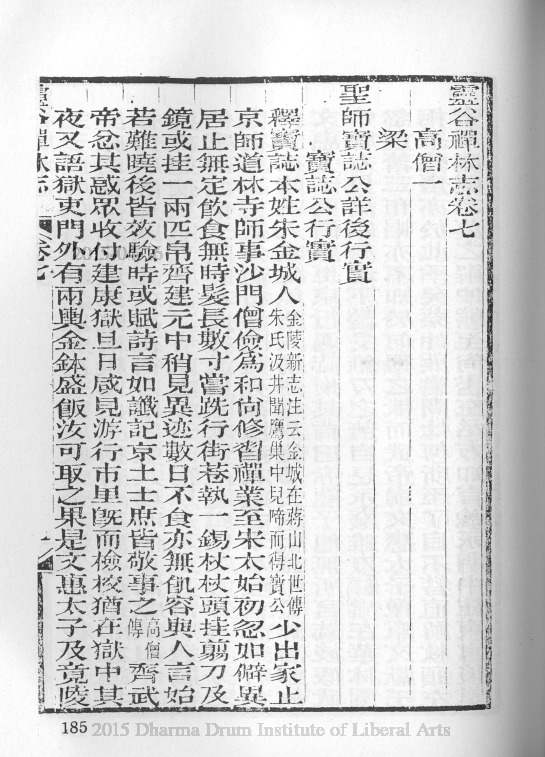 靈谷禪林志卷七
高僧一
梁
聖師寶誌公詳後行實
寶誌公行實
釋寶誌本姓朱金城人金陵新志注云金城在蔣山北世傳朱氏汲井聞鷹巢中兒啼而得寶公少出家止
京師道林寺師事沙門僧儉爲和尙修習禪業至宋太始初忽如僻異
居止無定飮食無時髮長數寸嘗跣行街巷執一錫杖杖頭挂翦刀及
鏡或挂一兩匹帛齊建元中稍見異迹數日不食亦無飢容與人言始
若難曉後皆效驗時或賦詩言如讖記京土士庶皆敬事之高僧傳齊武
帝忿其惑眾收付建康獄旦日咸見游行市里旣而檢校猶在獄中其
夜又語獄吏門外有兩輿金鉢盛飯汝可取之果是文惠太子及竟陵
靈谷禪林志
卷七
一
185 2015 Dharma Drum Institute of Liberal Arts